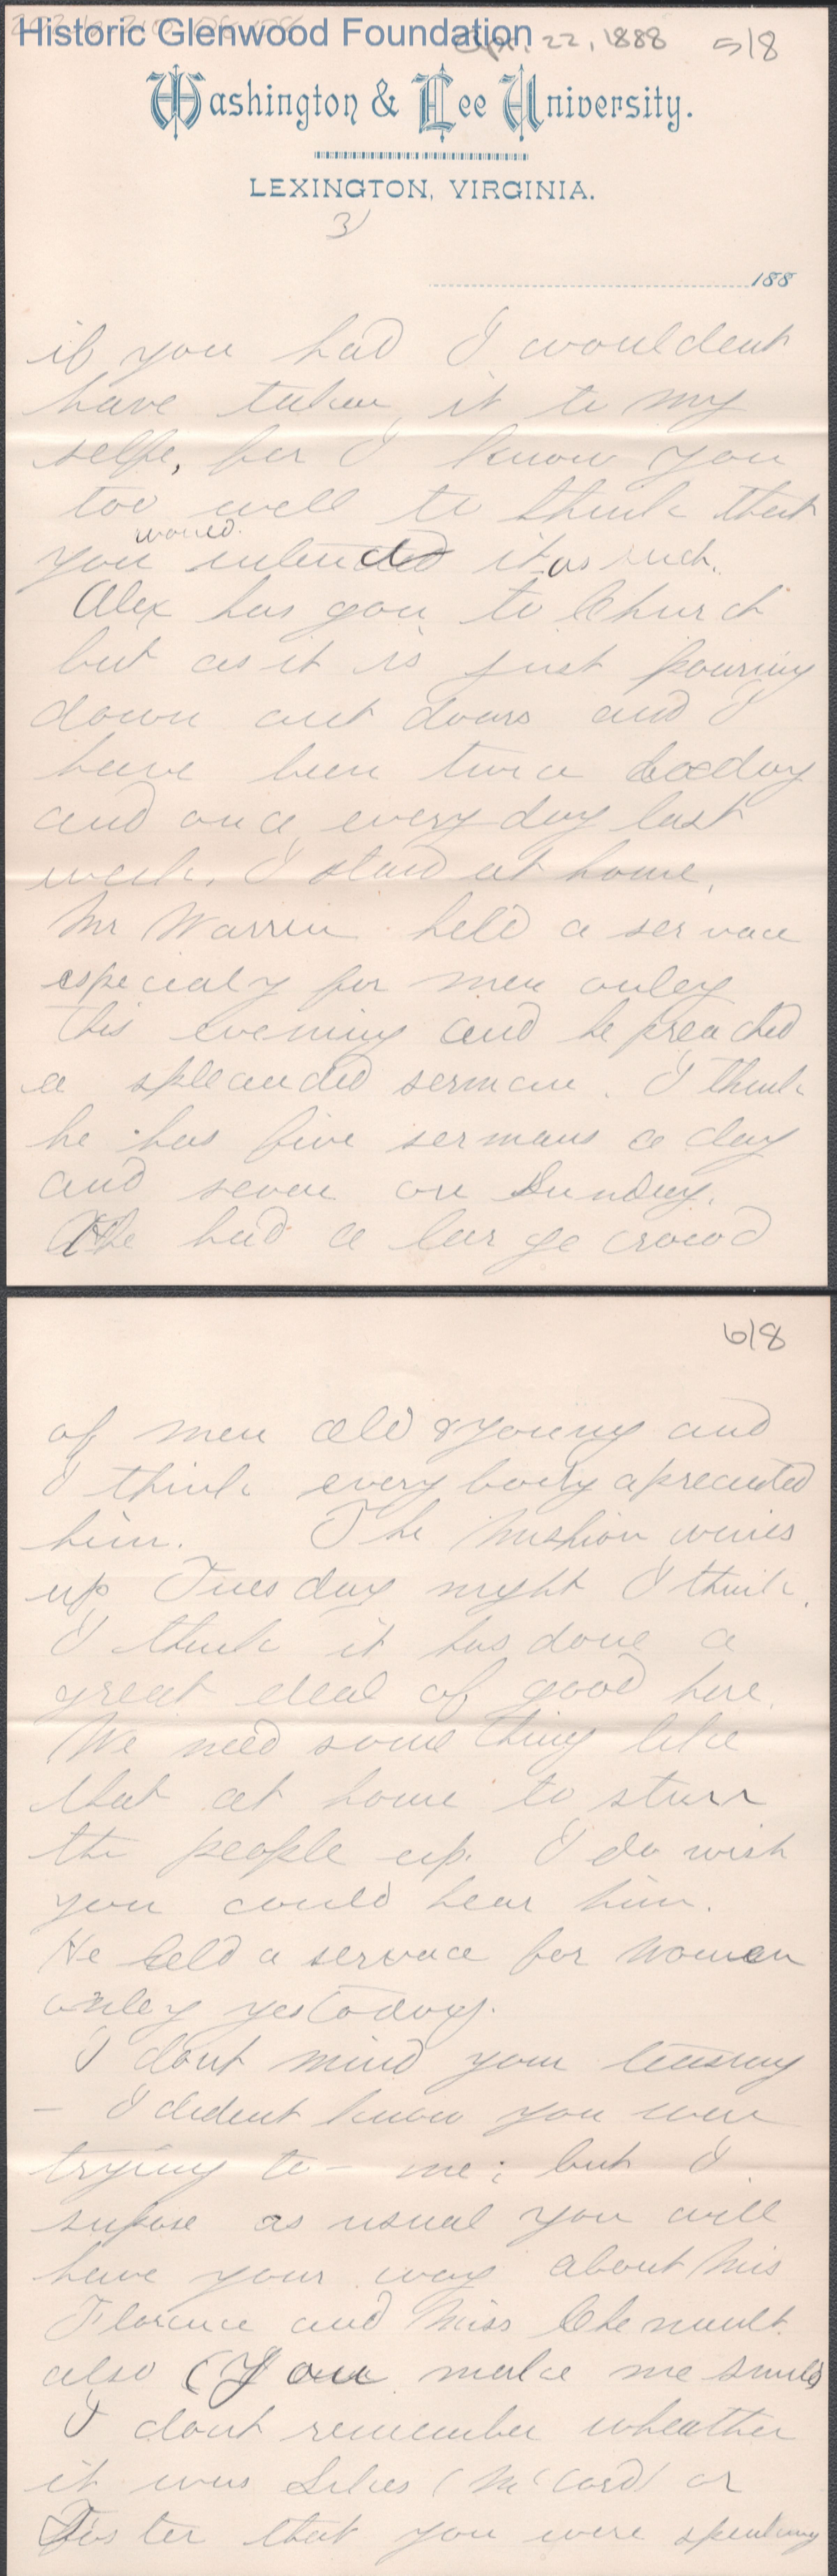 Historic Glenwood Foundation
Apr. 22, 1888 5/8
Washington & Lee University.
LEXINGTON, VIRGINIA.
3)
188
if you had I wouldent
have taken it to my
selfe, for I know you
too well to think that
would.
you intended it as such.
Alex has gon to Church
but as it is just pouring
down out doors and I
have been twice today
and once every day last
week, I staid at home,
Mr Warrin held a servace
especialy for men onley
this evening and he preached
a spleanded sermon. I think
he has five sermons a day
and seven on Sunday.
He had a large crowd
6/8
of men old & young and
I think every body apreceated
him. The Mishion winds
up Tuesday night I think.
I think it has done a
great deal of good here.
We need some thing like
that at home to sturr
the people up. I do wish
you could hear him.
He held a servace for women
onley yestoday.
I dont mind your teasing
- I dident know you were
trying to - me; but I
supose as usual you will
have your way about Miss
Florence and Miss Chenault
also (You make me smile)
I dont remember wheather
it was Silies (McCord) or
Foster that you were speaking